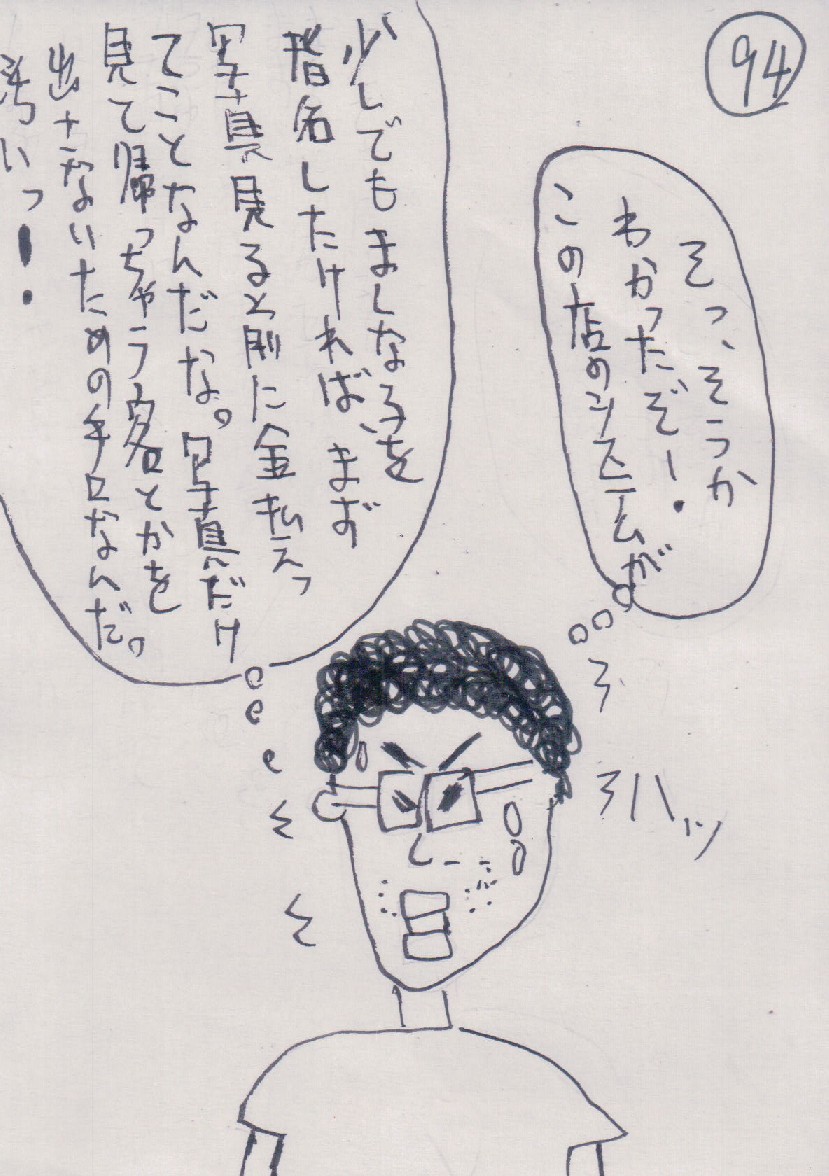 94
そっ、そうか
わかったぞー!
この店のシステムが
ハッ
少しでもましな子を
指名したければ、まず
写真見る前に金払えっ
てことなんだな。写真だけ
見て帰っちゃう客とかを
出さないための手口なんだ。
汚いっ!